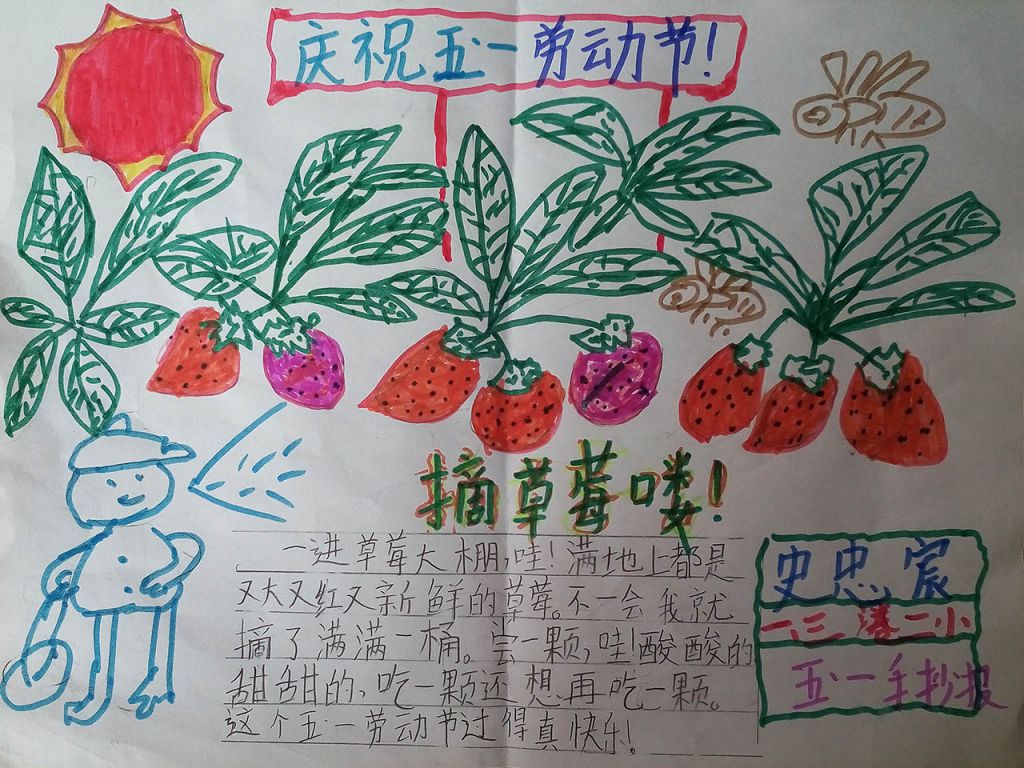 庆祝五·一劳动节!
摘草莓喽!
一进草莓大棚,哇!满地上都是
又大又红又新鲜的草莓。不一会我就
摘了满满一桶。尝一颗,哇!酸酸的
甜甜的,吃一颗还想再吃一颗。
这个五一劳动节过得真快乐!
史忠宸
一、三 潘二小
五·一手抄报